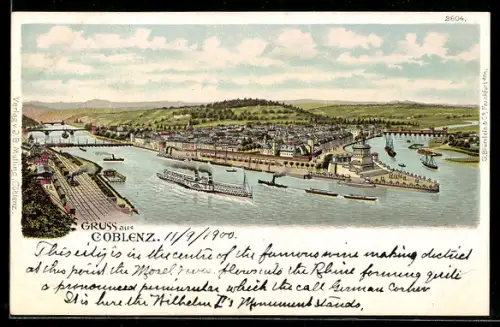 8604.
Verlag v. J. B. Walling, Coblenz.
G. Blümlein & Co. Frankfurt a. M.
GRUSS aus
COBLENZ. 11/9/1900.
This city is in the centre of the famous wine making district
at this point the Mosel river flows into the Rhine forming quite
a pronounced peninsular which the call German Corner
It is here the Wilhelm II's Monument stands,